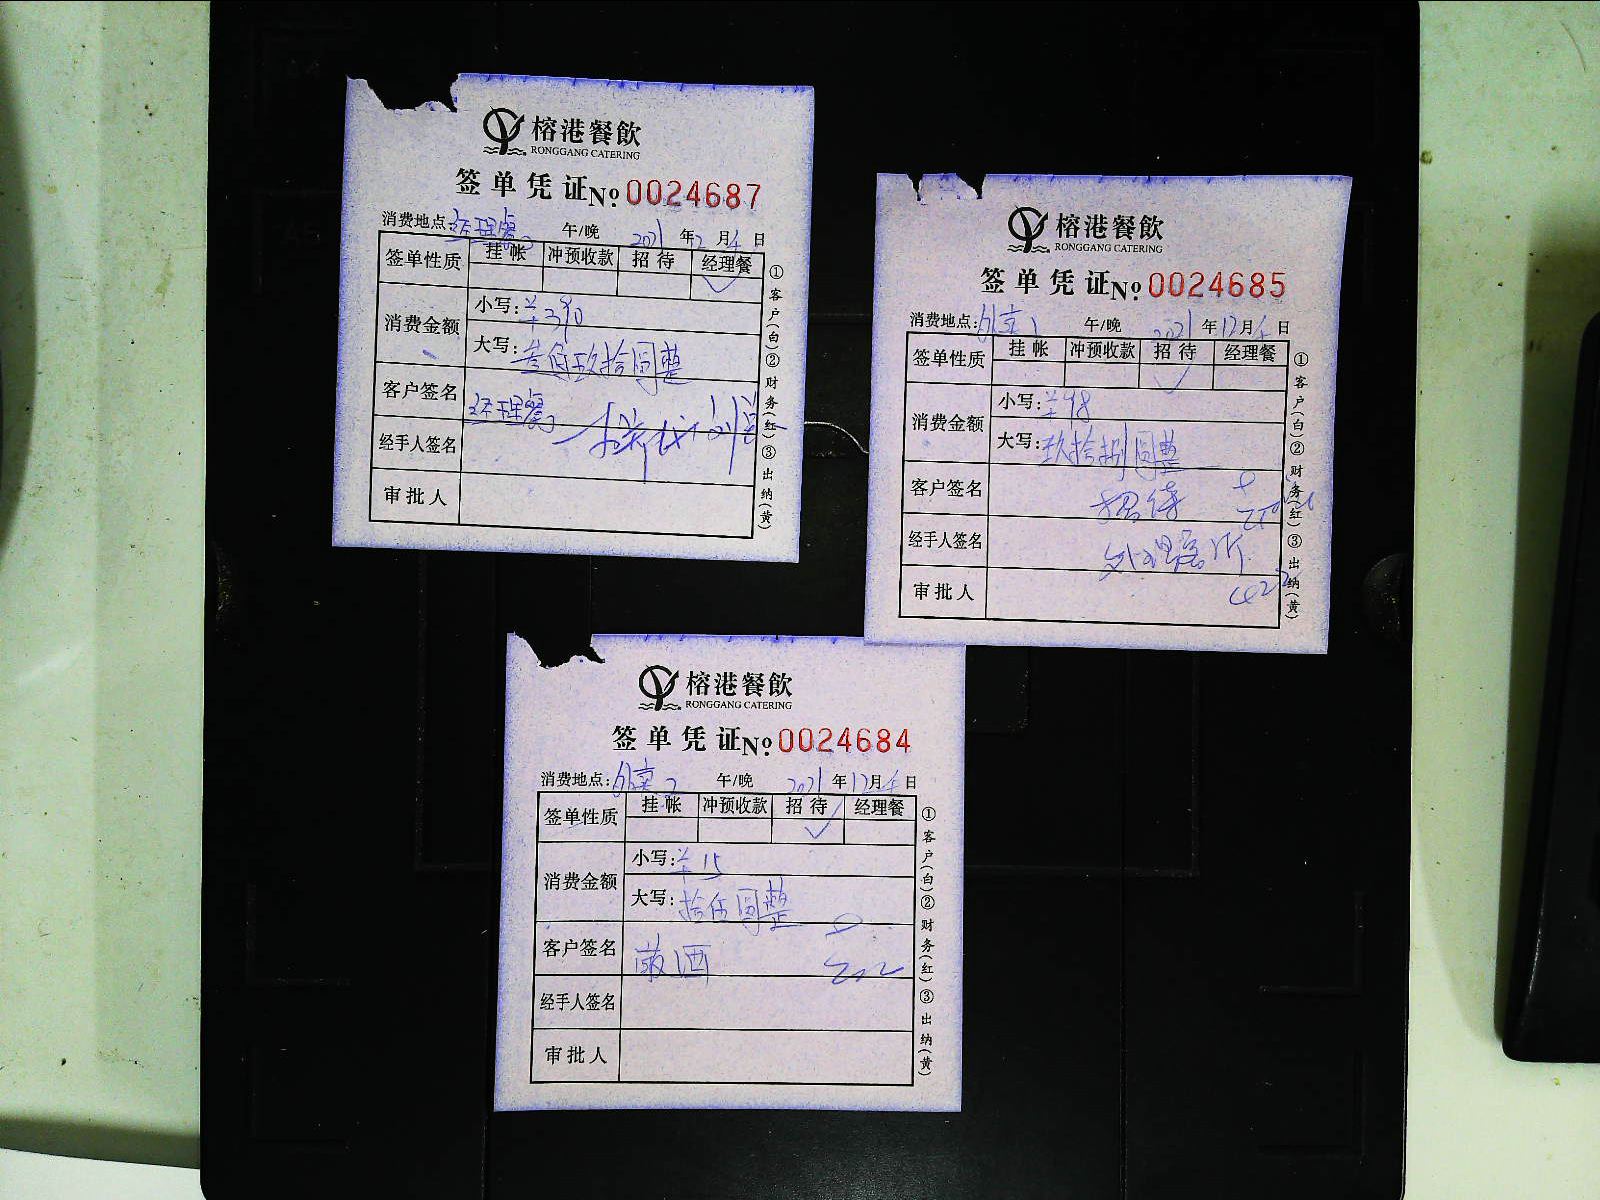 榕港餐飲
RONGGANG CATERING
签单凭证№0024687
消费地点:经理餐2 午/晚 2021年12月4日
签单性质 挂帐 冲预收款 招待 经理餐
✓
消费金额 小写:¥390
大写:叁佰玖拾圆整
客户签名 经理餐
经手人签名
审批人
①客户(白)②财务(红)③出纳(黄)
榕港餐飲
RONGGANG CATERING
签单凭证№0024685
消费地点:外卖1 午/晚 2021年12月4日
签单性质 挂帐 冲预收款 招待 经理餐
✓
消费金额 小写:¥98
大写:玖拾捌圆整
客户签名 招待
经手人签名
审批人
①客户(白)②财务(红)③出纳(黄)
榕港餐飲
RONGGANG CATERING
签单凭证№0024684
消费地点:外卖2 午/晚 2021年12月4日
签单性质 挂帐 冲预收款 招待 经理餐
✓
消费金额 小写:¥15
大写:拾伍圆整
客户签名
经手人签名
审批人
①客户(白)②财务(红)③出纳(黄)